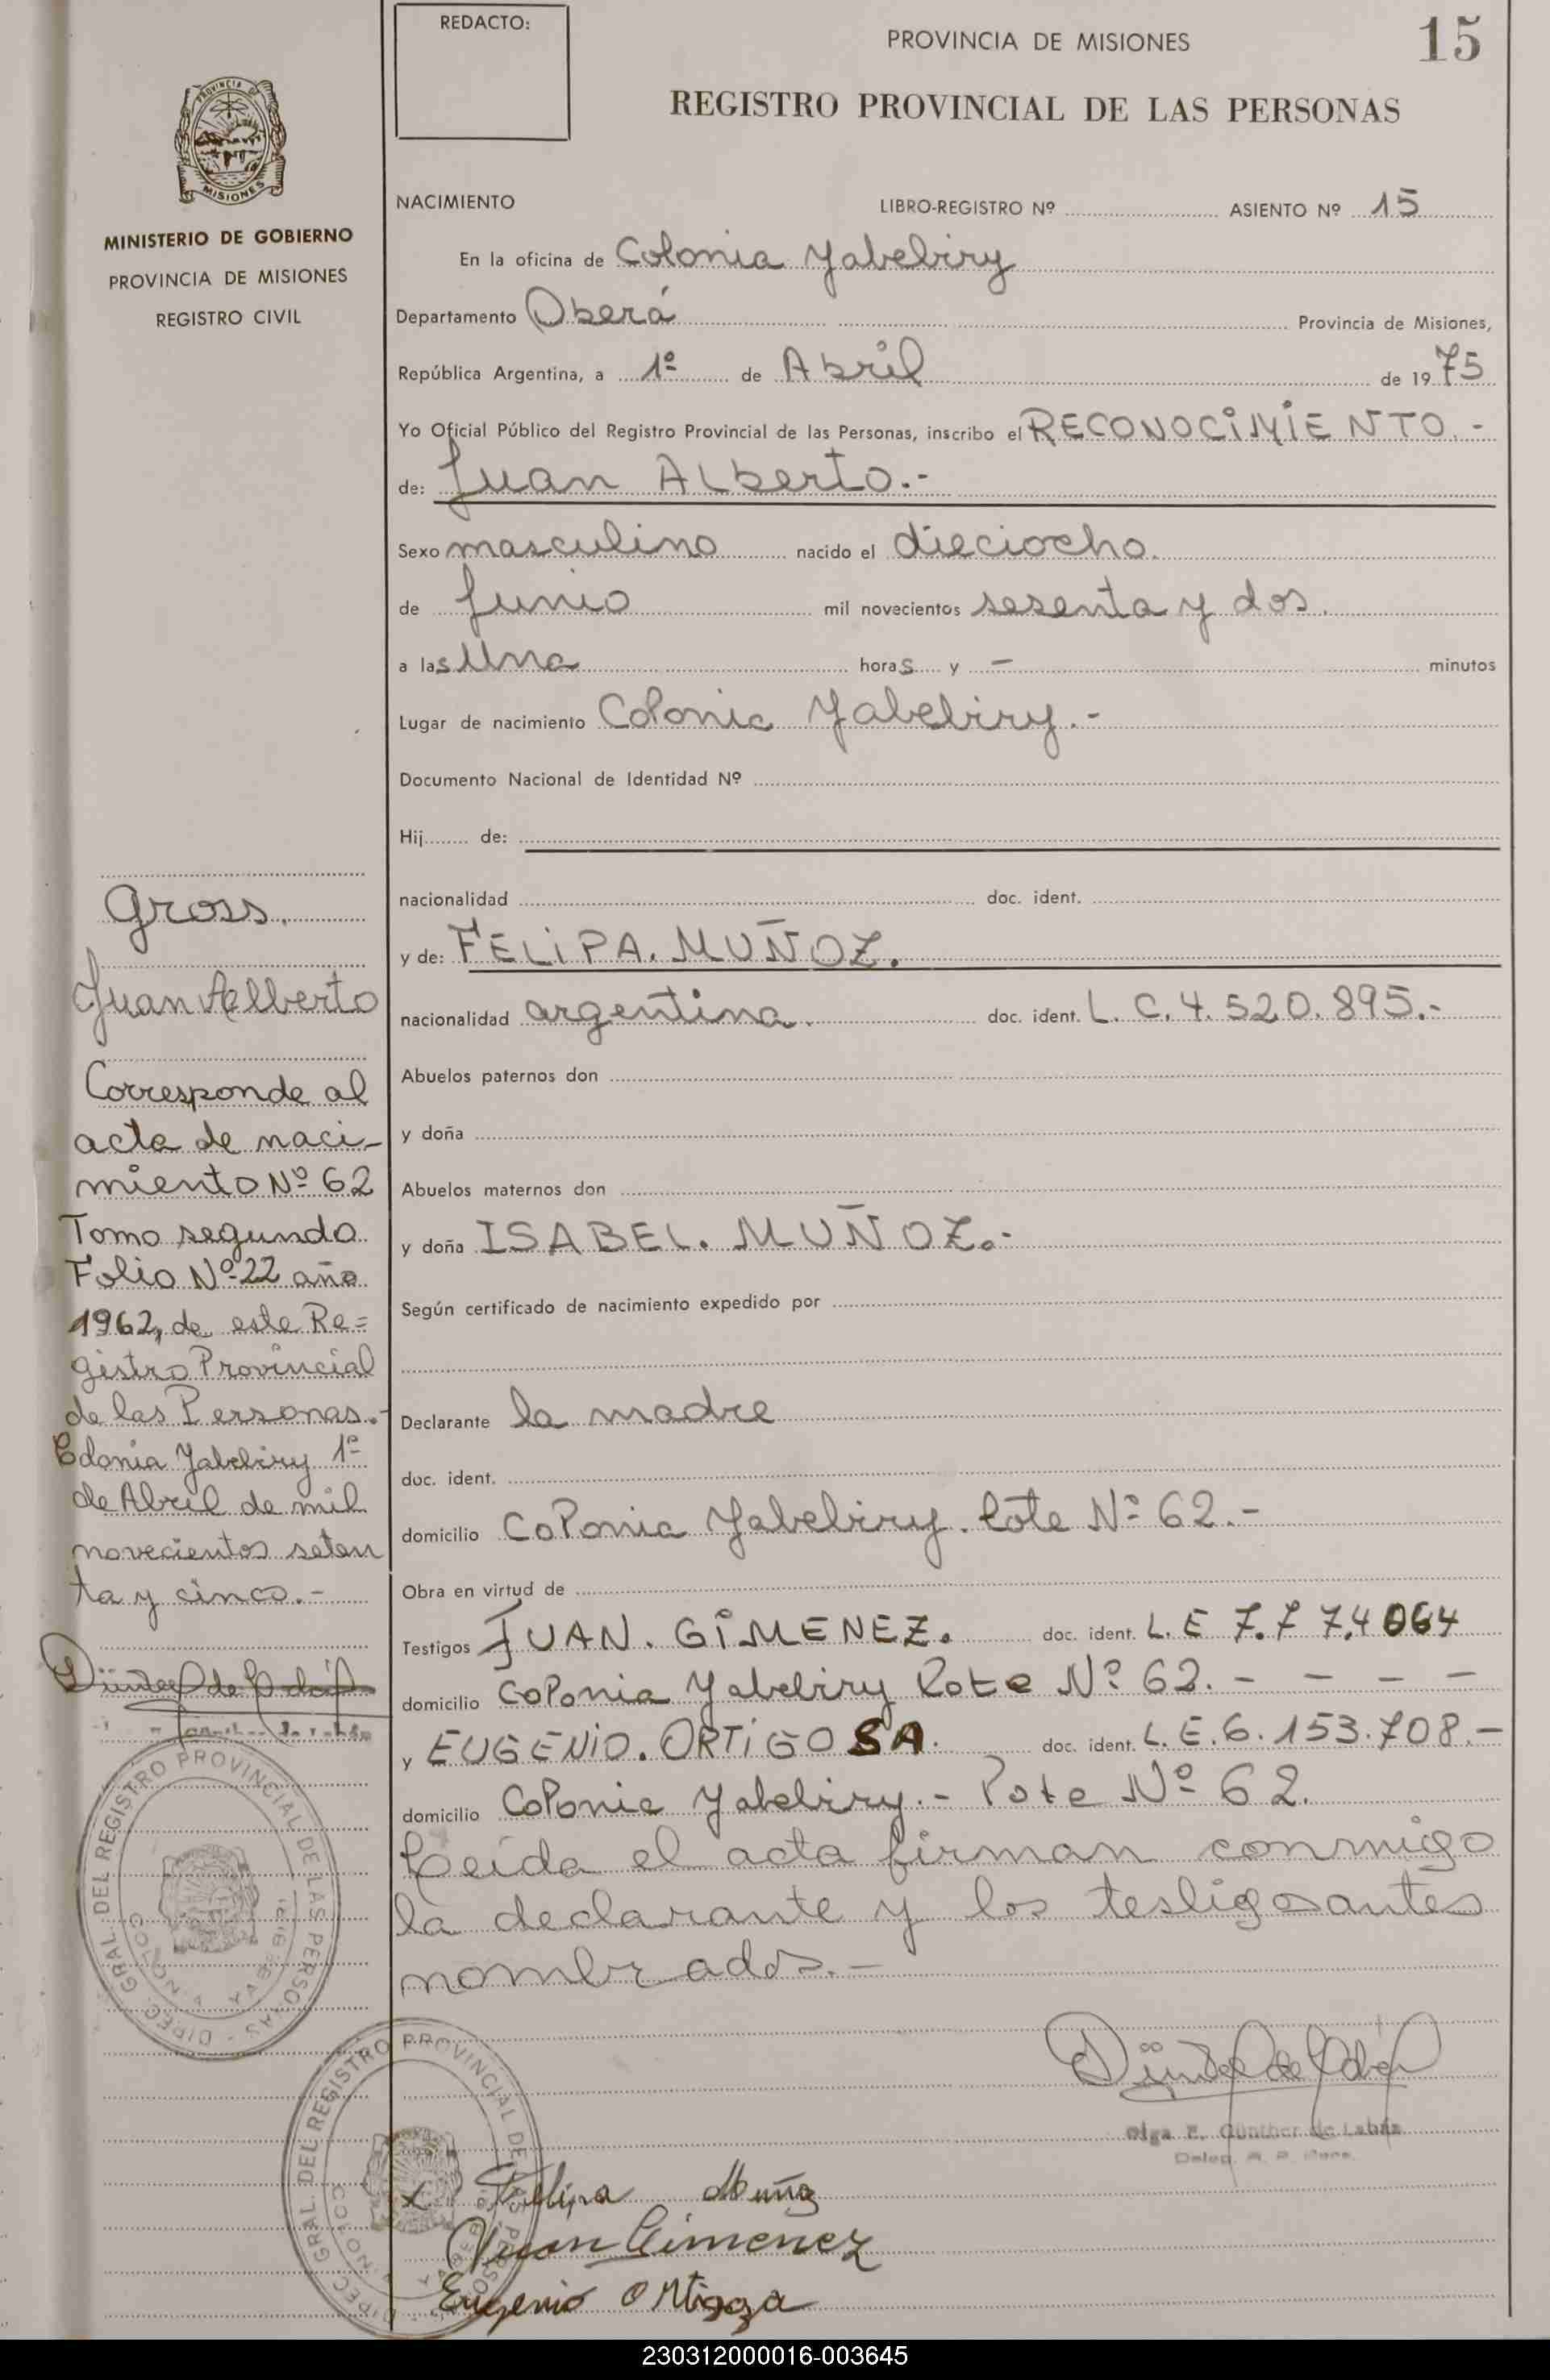 REDACTO:
PROVINCIA DE MISIONES
15
REGISTRO PROVINCIAL DE LAS PERSONAS
PROVINCIA DE
MISIONES
MINISTERIO DE GOBIERNO
PROVINCIA DE MISIONES
REGISTRO CIVIL
NACIMIENTO LIBRO-REGISTRO Nº ASIENTO Nº 15
En la oficina de Colonia Yabebiry
Departamento Oberá Provincia de Misiones,
República Argentina, a 1º de Abril de 1975
Yo Oficial Público del Registro Provincial de las Personas, inscribo el RECONOCIMIENTO.-
de: Juan Alberto.-
Sexo masculino nacido el dieciocho.
de Junio mil novecientos sesenta y dos.
a las Una horas y - minutos
Lugar de nacimiento Colonia Yabebiry.-
Documento Nacional de Identidad Nº
Hij de:
nacionalidad doc. ident.
y de: FELIPA. MUÑOZ.
nacionalidad argentina. doc. ident. L. C. 4. 520. 895.-
Abuelos paternos don
y doña
Abuelos maternos don
y doña ISABEL. MUÑOZ.-
Según certificado de nacimiento expedido por
Declarante la madre
doc. ident.
domicilio Colonia Yabebiry. lote Nº 62.-
Obra en virtud de
Testigos JUAN. GIMENEZ. doc. ident. L. E 7.7 7,4 064
domicilio Colonia Yabebiry Lote Nº 62. - - - -
y EUGENIO. ORTIGOSA. doc. ident. L. E. 6. 153. 708.-
domicilio Colonia Yabebiry.- Lote Nº 62.
Leída el acta firman conmigo
la declarante y los testigos antes
nombrados.-
Gross.
Juan Alberto
Corresponde al
acta de naci-
miento Nº 62
Tomo segundo
Folio Nº 22 año
1962, de este Re=
gistro Provincial
de las Personas.-
Colonia Yabebiry 1º
de Abril de mil
novecientos seten
ta y cinco.-
DIREC. GRAL. DEL REGISTRO PROVINCIAL DE LAS PERSONAS
COLONIA YABEBIRI
DIREC. GRAL. DEL REGISTRO PROVINCIAL DE LAS PERSONAS
COLONIA YABEBIRI
Olga E. Günther de Labán
x Felipa Muñoz
Juan Gimenez
Eugenio Ortigoza
230312000016-003645